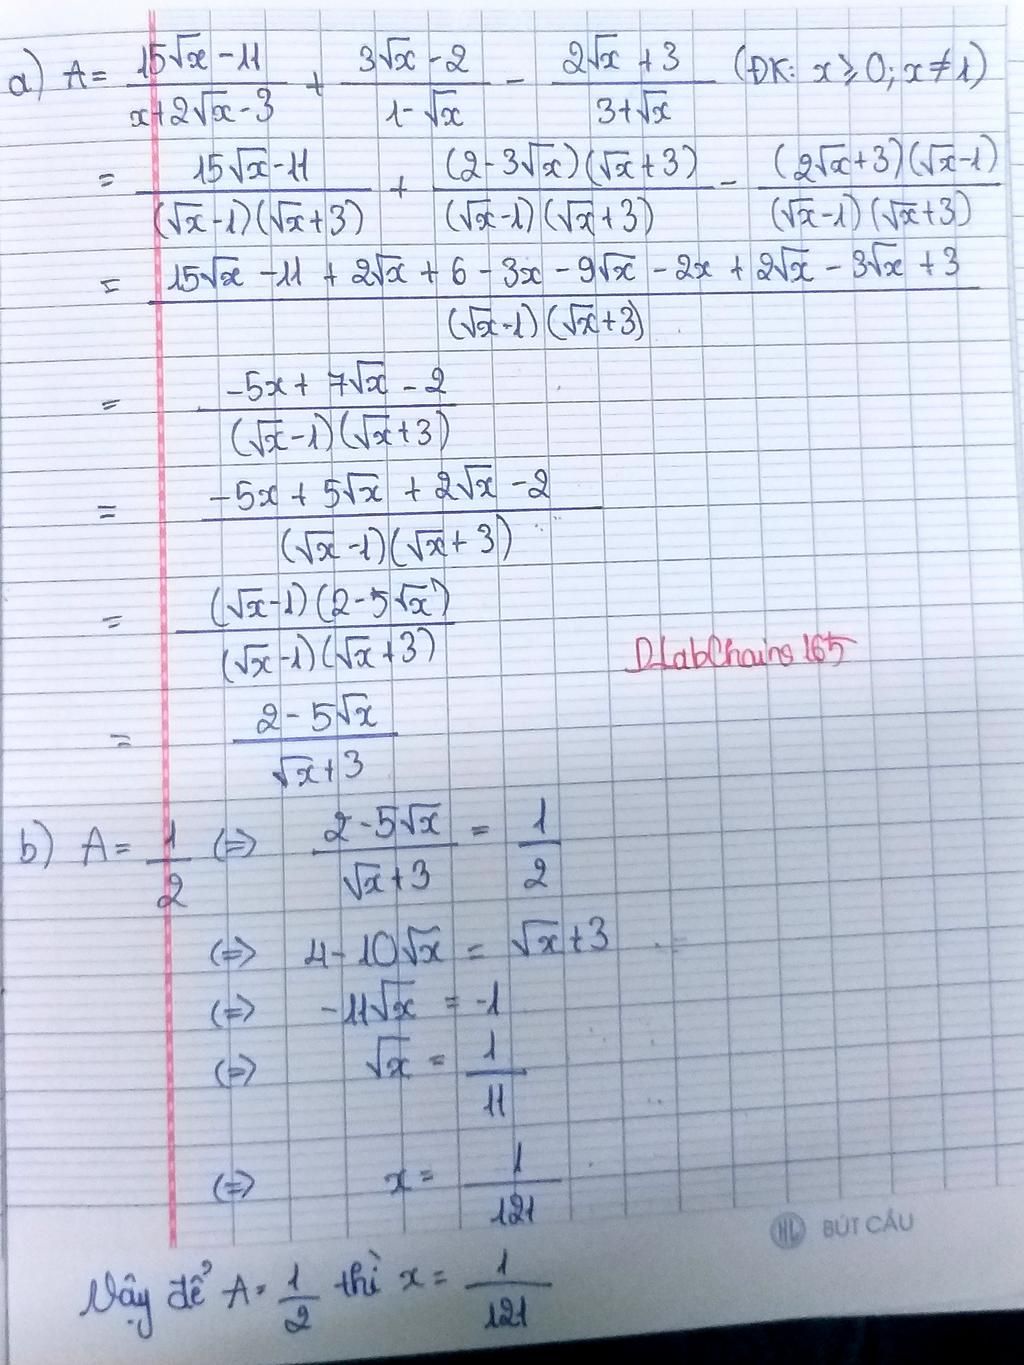 a) A = (15√x - 11)/(x + 2√x - 3) + (3√x - 2)/(1 - √x) - (2√x + 3)/(3 + √x) (ĐK: x ≥ 0; x ≠ 1)
= (15√x - 11)/((√x - 1)(√x + 3)) + ((2 - 3√x)(√x + 3))/((√x - 1)(√x + 3)) - ((2√x + 3)(√x - 1))/((√x - 1)(√x + 3))
= (15√x - 11 + 2√x + 6 - 3x - 9√x - 2x + 2√x - 3√x + 3)/((√x - 1)(√x + 3))
= (-5x + 7√x - 2)/((√x - 1)(√x + 3))
= (-5x + 5√x + 2√x - 2)/((√x - 1)(√x + 3))
= ((√x - 1)(2 - 5√x))/((√x - 1)(√x + 3))
DLabChains165
= (2 - 5√x)/(√x + 3)
b) A = 1/2 (=) (2 - 5√x)/(√x + 3) = 1/2
(=) 4 - 10√x = √x + 3
(=) -11√x = -1
(=) √x = 1/11
(=) x = 1/121
HL BÚT CÂU
Vậy để A = 1/2 thì x = 1/121